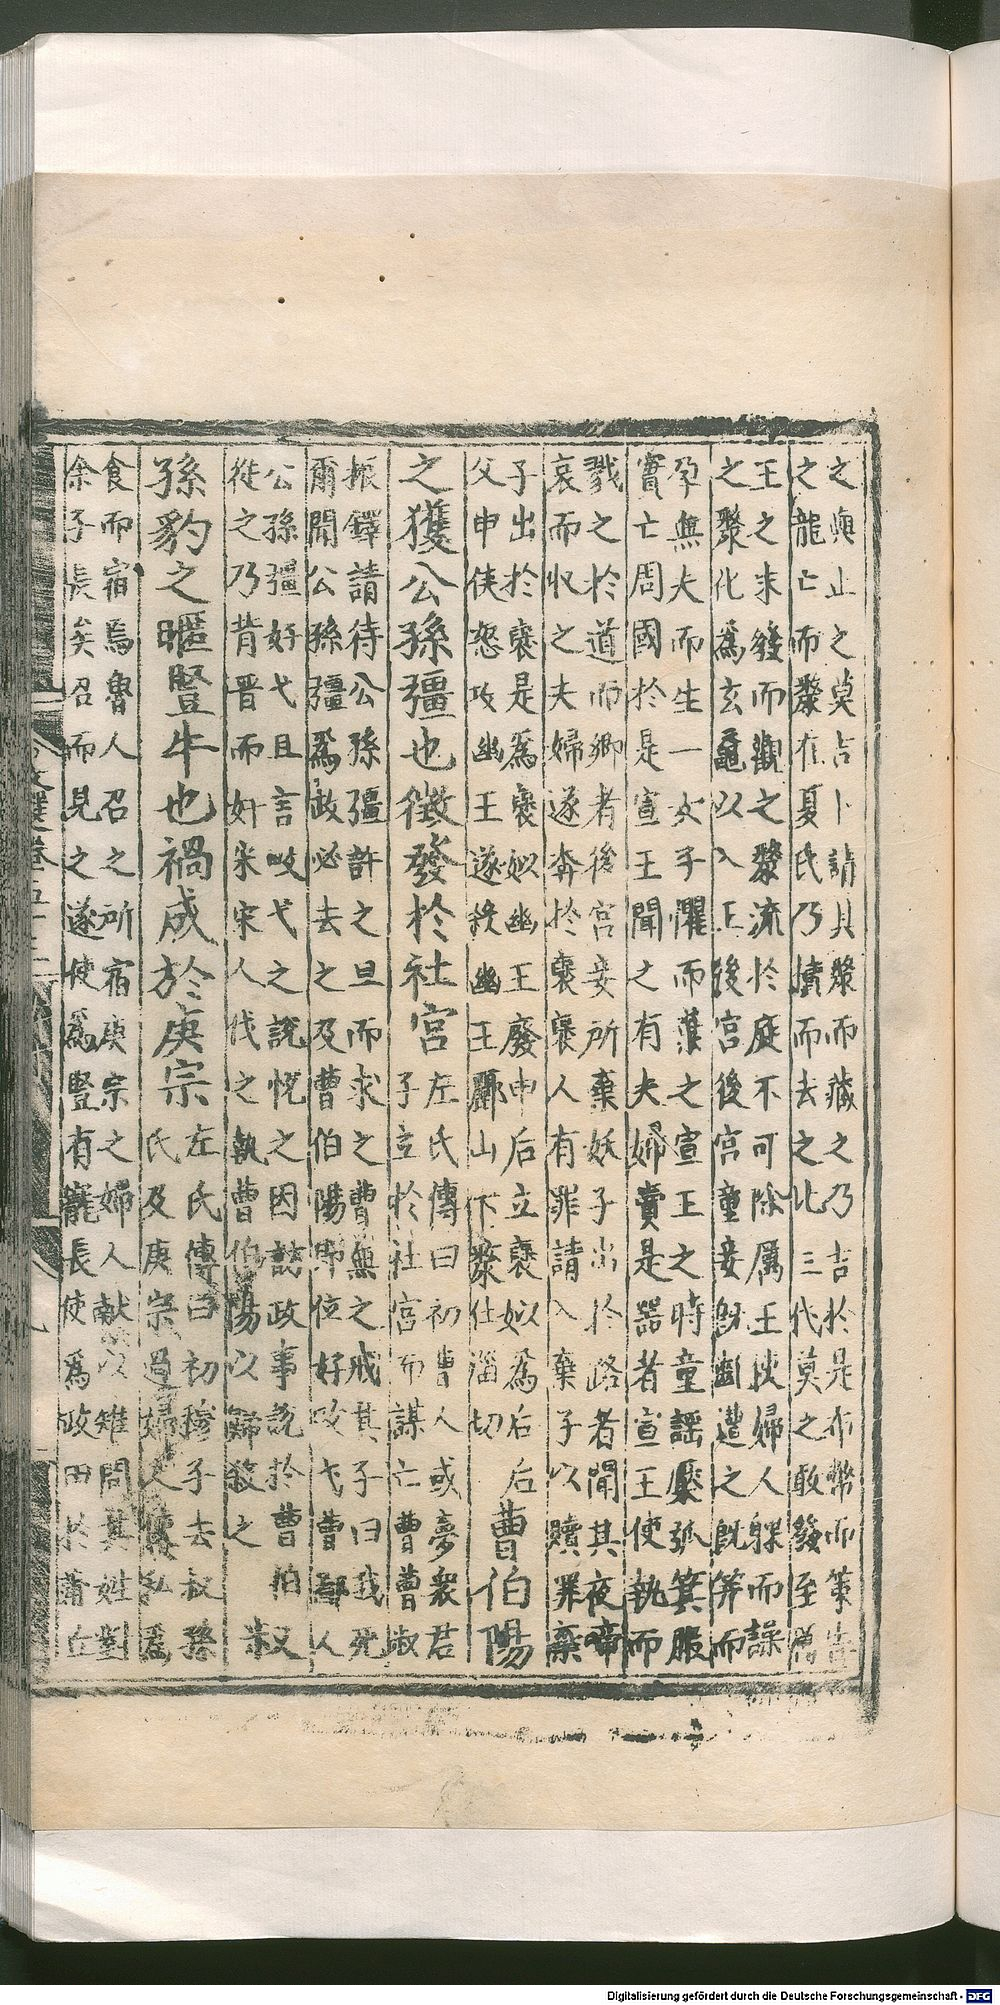 之與止之莫吉卜請其漦而藏之乃吉於是布幣而策告
之龍亡而漦在夏氏乃櫝而去之比三代莫之敢發至厲
王之末發而觀之漦流於庭不可除厲王使婦人躶而譟
之漦化為玄黿以入王後宮後宮童妾旣齓遭之旣笄而
孕無夫而生一女子懼而棄之宣王之時童謡檿弧箕服
實亡周國於是宣王聞之有夫婦賣是器者宣王使執而
戮之於道而鄉者後宮妾所棄妖子出於路者聞其夜啼
哀而收之夫婦遂奔於襃襃人有罪請入棄子以贖罪棄
子出於襃是為襃姒幽王廢申后立襃姒為后后
父申侯怒攻幽王遂殺幽王驪山下漦仕淄切
曹伯陽
之獲公孫彊也徵發於社宮
左氏傳曰初曹人或夢衆君
子立於社宮而謀亡曹曹叔
振鐸請待公孫彊許之旦而求之曹無之戒其子曰我死
爾聞公孫彊為政必去之及曹伯陽即位好畋弋曹鄙人
公孫彊好弋且言畋弋之說悅之因訪政事說於曹伯
從之乃背晉而奸宋宋人伐之執曹伯陽以歸殺之
叔
孫豹之暱豎牛也禍成於庚宗
左氏傳曰初穆子去叔孫
氏及庚宗遇婦人使私為
食而宿焉魯人召之所宿庚宗之婦人献以雉問其姓對
余子長矣召而見之遂使為豎有寵長使為政田於蒲丘